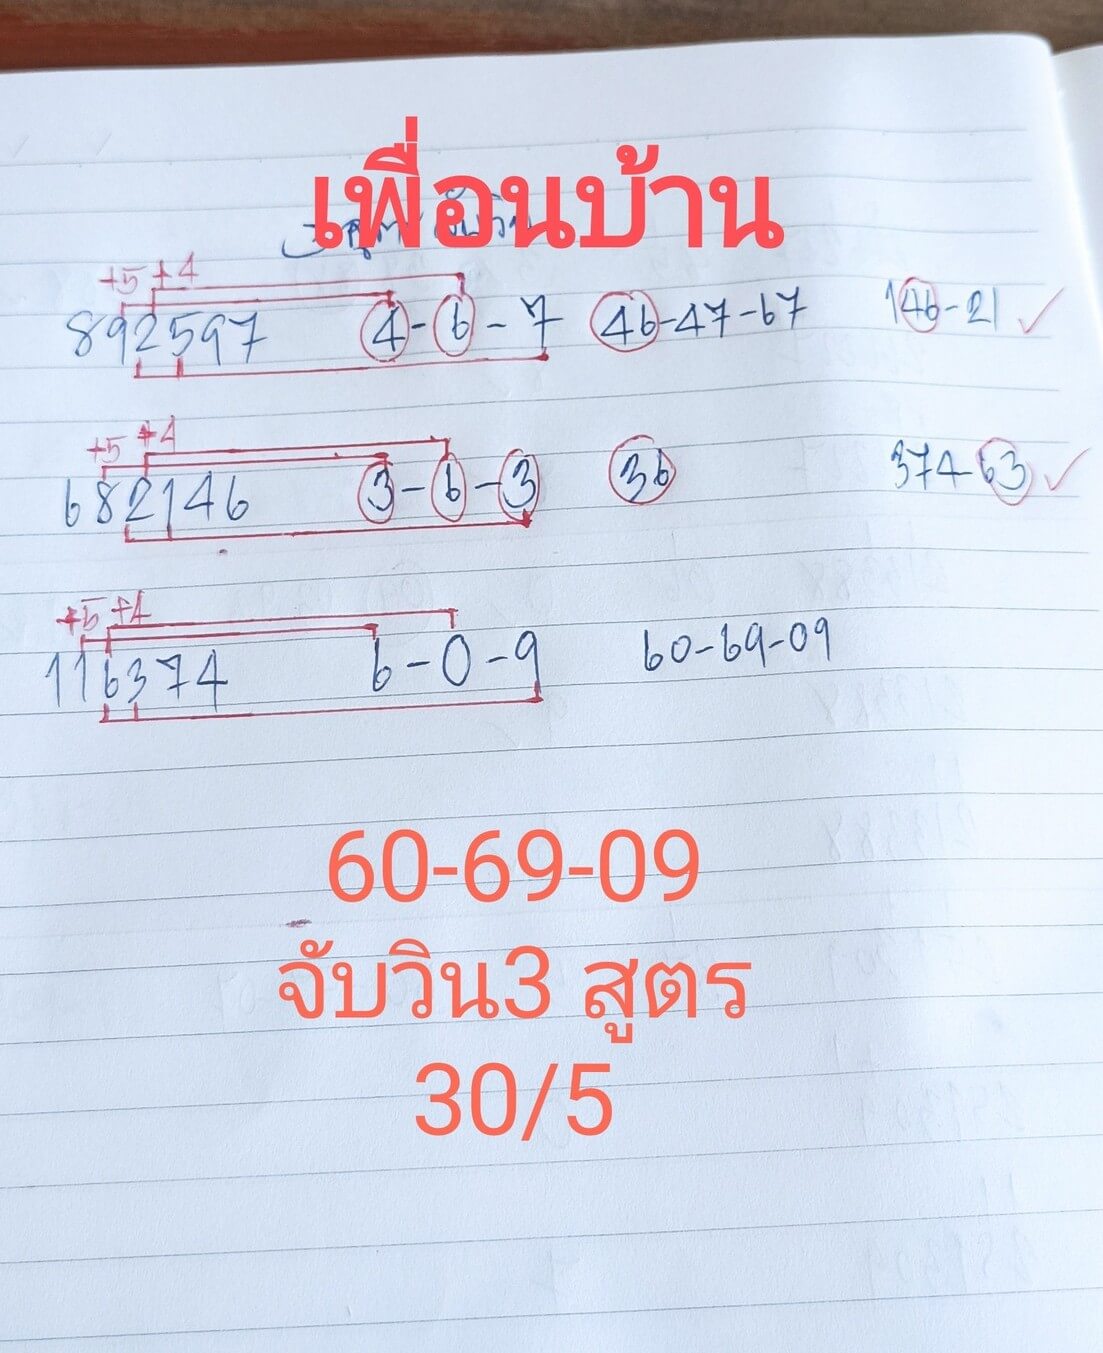 เพื่อนบ้าน
+5 +4
892597 4-6-7 46-47-67 146-21 ✓
+5 +4
682146 3-6-3 36 374-63 ✓
+5 +4
116374 6-0-9 60-69-09
60-69-09
จับวิน3 สูตร
30/5